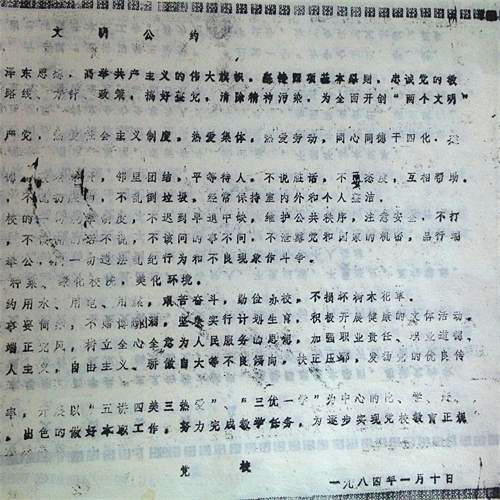 文明公约
泽东思想，高举共产主义的伟大旗帜。坚持四项基本原则，忠诚党的教
路线、方针、政策，搞好整党，清除精神污染，为全面开创“两个文明”
产党，热爱社会主义制度。热爱集体，热爱劳动，同心同德干四化，
邻里团结，平等待人。不说脏话，不，互相帮助。
不乱，不乱倒垃圾，经常保持室内外和个人整洁。
校的一切规章制度，不迟到早退中缺，维护公共秩序，注意安全，不打
，不该说的话不说，不该问的事不问，不泄露党和国家的机密，品行端
奉公，同一切违法乱纪行为和不良现象作斗争。
种菜、绿化校院，美化环境。
约用水、用电、用煤，艰苦奋斗，勤俭办校。不损坏树木花草。
简朴，不赌博酗酒，坚决实行计划生育，积极开展健康的文体活动。
端正党风，树立全心全意为人民服务的思想，加强职业责任、职业道德、
人主义，自由主义、骄傲自大等不良倾向，扶正压邪，发扬党的优良传
，开展以“五讲四美三热爱”、“三优一学”为中心的比、学、
，出色的做好本职工作，努力完成教学任务，为逐步实现党校教育正规
党校
一九八四年一月十日